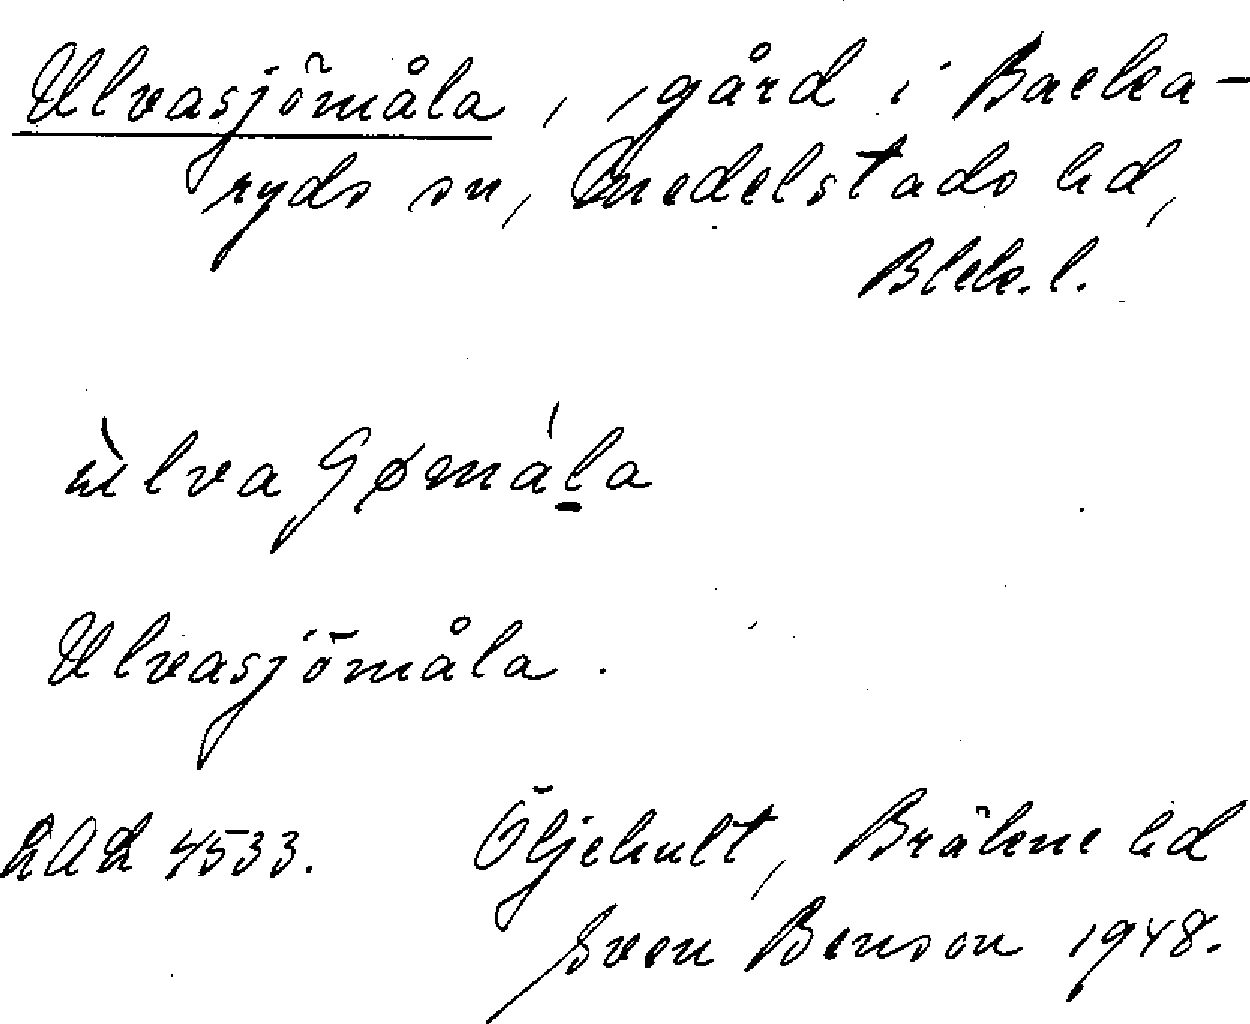 Ulvasjömåla, gård i Backa-
ryds sn, Medelstads hd,
Blek.l.
ùlva Gømá̱la
Ulvasjömåla.
LAL 4533. Öljehult, Bräkne hd
Sven Benson 1948.